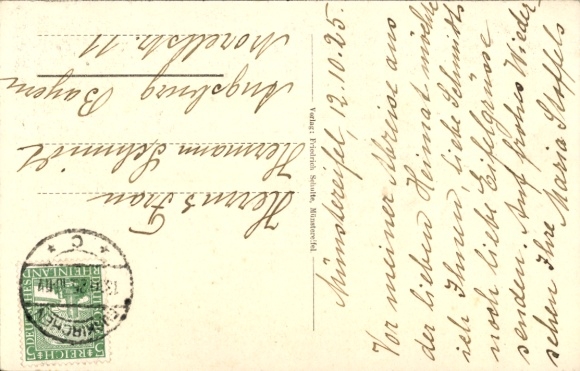 Münstereifel, 12.10.25.
Vor meiner Abreise aus
der lieben Heimat möchte
ich Ihnen, liebe Schmidts
noch liebe Eifelgrüsse
senden. Auf frohes Wieder-
sehen Ihre Maria Stoffels
Verlag: Friedrich Schulte, Münstereifel.
Herrn & Frau
Hermann Schmidt
Augsburg Bayern
Morellstr. 11
EUSKIRCHEN
* C *
RHEINLAND
5 DEUTSCHES REICH 5